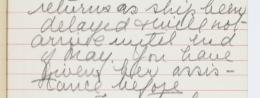 returns as ship been
delayed & will not
arrive until end
of May. You have
given her assis-
tance before